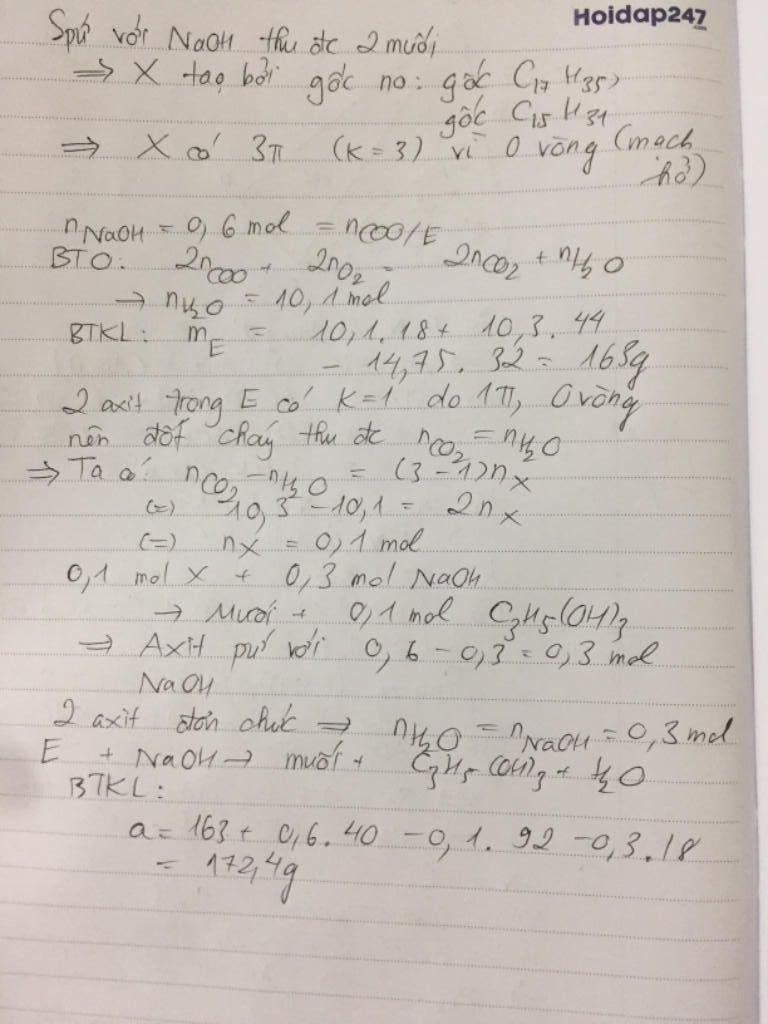 Hoidap247
Spứ với NaOH thu đc 2 muối
⇒ X tạo bởi gốc no: gốc C17H35,
gốc C15H31
⇒ X có 3π (k=3) vì 0 vòng (mạch
hở)
nNaOH = 0,6 mol = nCOO/E
BTO: 2nCOO + 2nO2 = 2nCO2 + nH2O
→ nH2O = 10,1 mol
BTKL: mE = 10,1.18 + 10,3.44
- 14,75.32 = 163g
2 axit trong E có k=1 do 1π, 0 vòng
nên đốt cháy thu đc nCO2 = nH2O
⇒ Ta có: nCO2 - nH2O = (3-1)nX
(=) 10,3 - 10,1 = 2nX
(=) nX = 0,1 mol
0,1 mol X + 0,3 mol NaOH
→ Muối + 0,1 mol C3H5(OH)3
⇒ Axit pứ với 0,6 - 0,3 = 0,3 mol
NaOH
2 axit đơn chức ⇒ nH2O = nNaOH = 0,3 mol
E + NaOH → muối + C3H5(OH)3 + H2O
BTKL:
a = 163 + 0,6.40 - 0,1.92 - 0,3.18
= 172,4g